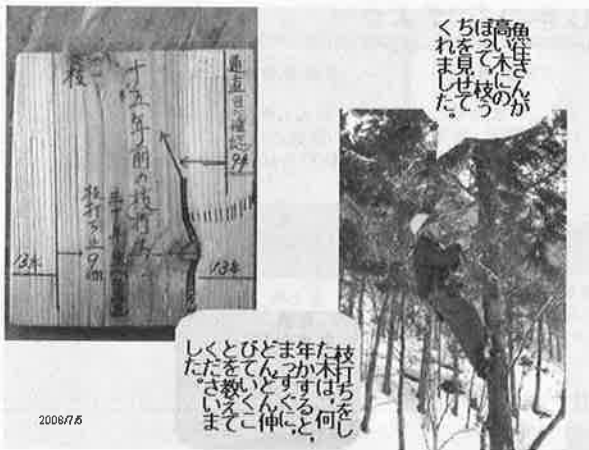 魚住さんが
高い木にの
ぼって、枝う
ちを見せて
くれました。
十五年前の枝打
9m
13年
13年
枝
枝打ちをし
た木は、何
年かすると、
まっすぐに、
どんどん伸
びていくこ
とを教えて
くださいま
した。
2006/7/5